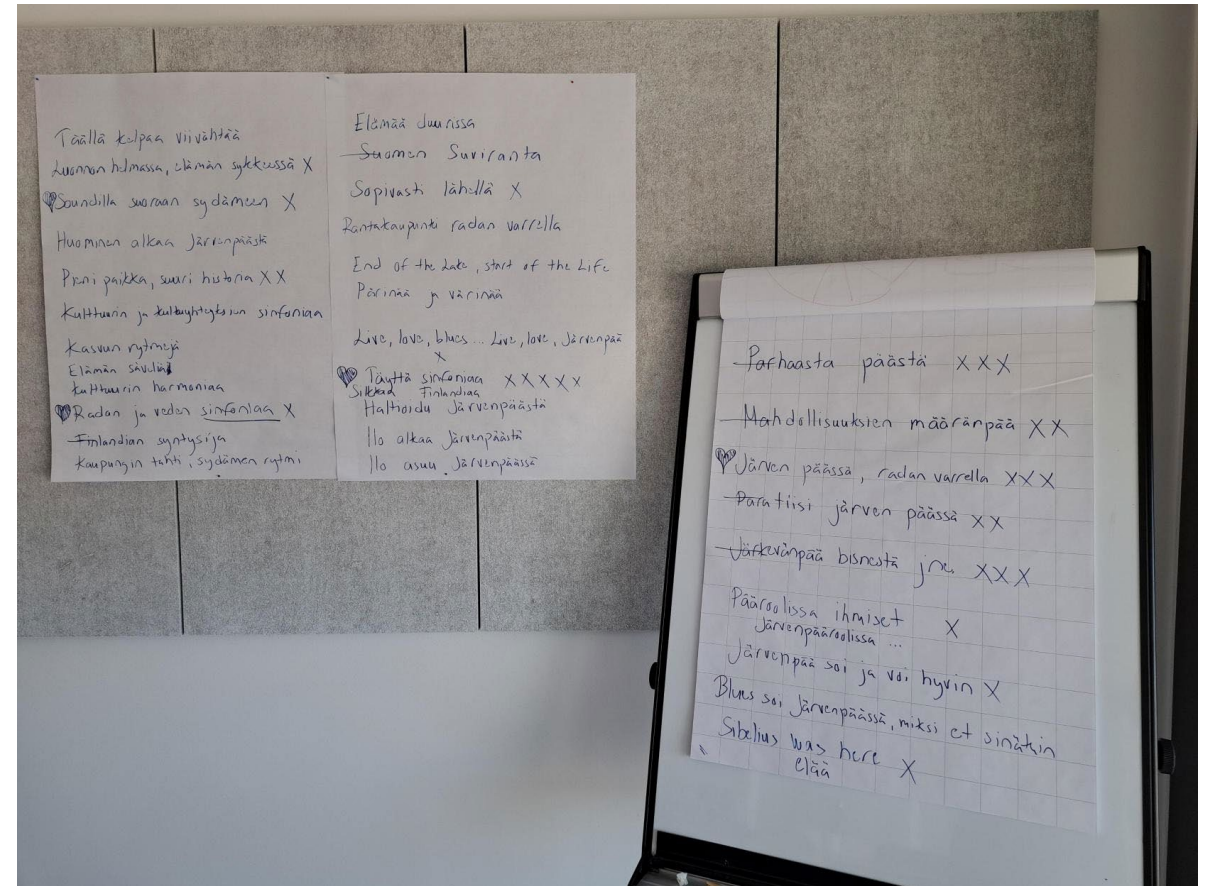 Täällä kelpaa viivähtää
Luonnon helmassa, elämän sykkeessä X
Soundilla suoraan sydämeen X
Huominen alkaa Järvenpäästä
Pieni paikka, suuri historia X X
Kulttuurin ja kulkuyhteyksien sinfoniaa
Kasvun rytmejä
Elämän säveliä
Kulttuurin harmoniaa
Radan ja veden sinfoniaa X
Finlandian syntysija
Kaupungin tahti, sydämen rytmi
Elämää duurissa
Suomen Suviranta
Sopivasti lähellä X
Rantakaupunki radan varrella
End of the Lake, start of the Life
Pärinää ja värinää
Live, love, blues... Live, love, Järvenpää
X
Täyttä sinfoniaa X X X X X
Silkkaa Finlandiaa
Haltioidu Järvenpäästä
Ilo alkaa Järvenpäästä
Ilo asuu Järvenpäässä
Parhaasta päästä X X X
Mahdollisuuksien määränpää X X
Järven päässä, radan varrella X X X
Paratiisi järven päässä X X
Järkevänpää bisnestä jne. X X X
Pääroolissa ihmiset X
Järvenpääroolissa ...
Järvenpää soi ja voi hyvin X
Blues soi Järvenpäässä, miksi et sinäkin
Sibelius was here X
elää